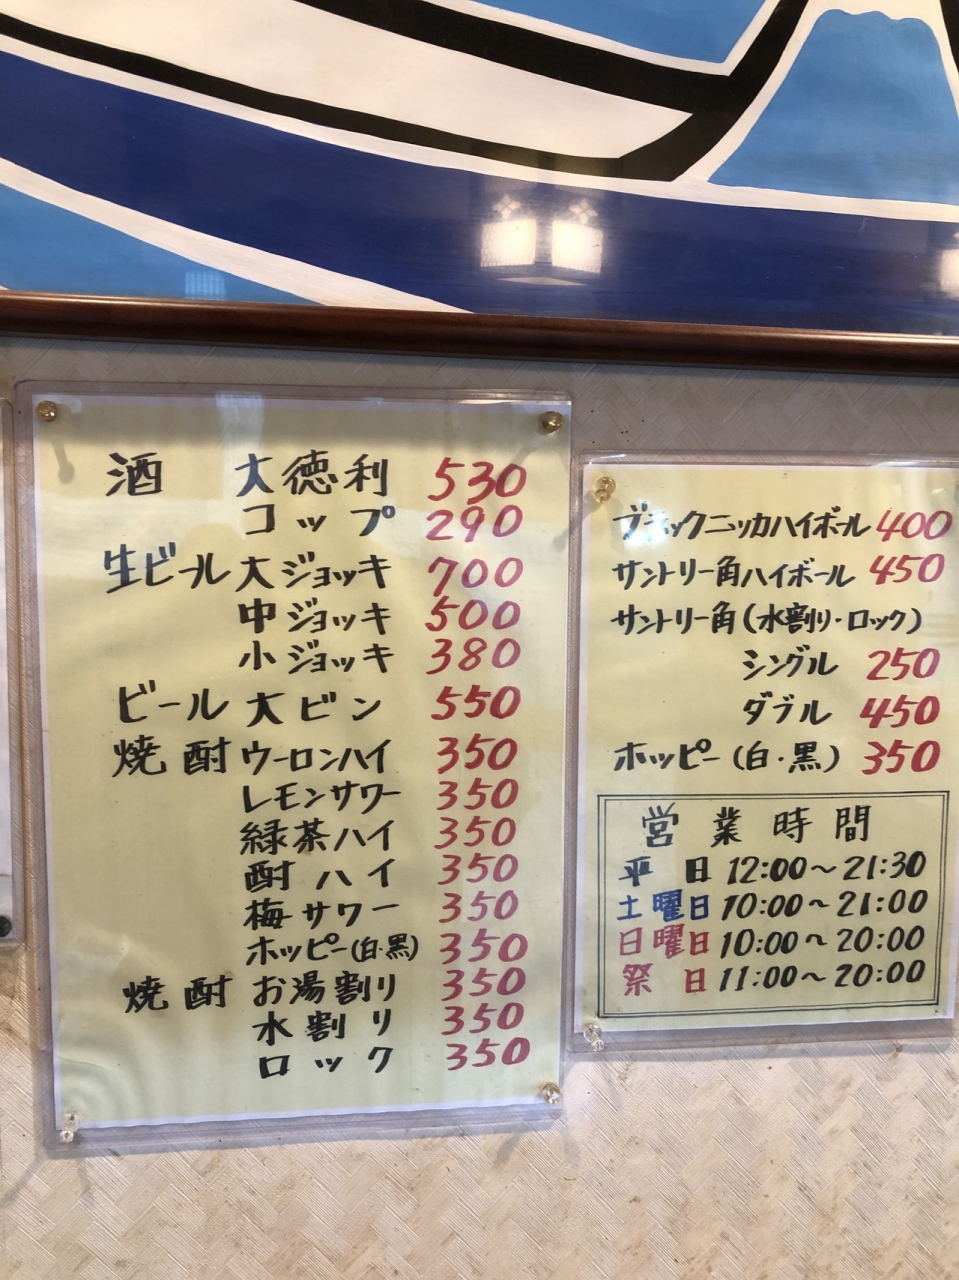 酒 大徳利 530
コップ 290
生ビール 大ジョッキ 700
中ジョッキ 500
小ジョッキ 380
ビール 大ビン 550
焼酎 ウーロンハイ 350
レモンサワー 350
緑茶ハイ 350
酎ハイ 350
梅サワー 350
ホッピー(白・黒) 350
焼酎 お湯割り 350
水割り 350
ロック 350
ブラックニッカハイボール 400
サントリー角ハイボール 450
サントリー角(水割り・ロック)
シングル 250
ダブル 450
ホッピー(白・黒) 350
営業時間
平日 12:00～21:30
土曜日 10:00～21:00
日曜日 10:00～20:00
祭日 11:00～20:00